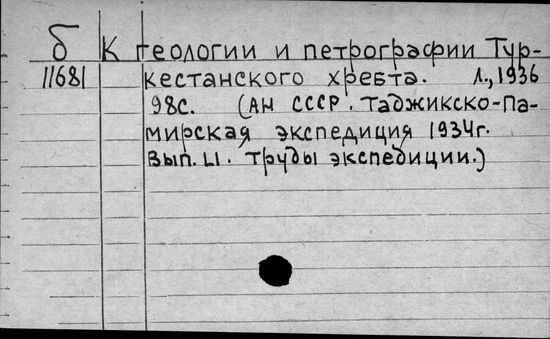 б К геологии и петрографии Тур-
11681 кестанского хребта. Л., 1936
98с. (АН СССР. Таджикско-Па-
мирская экспедиция 1934г.
Вып. LI. Труды экспедиции.)